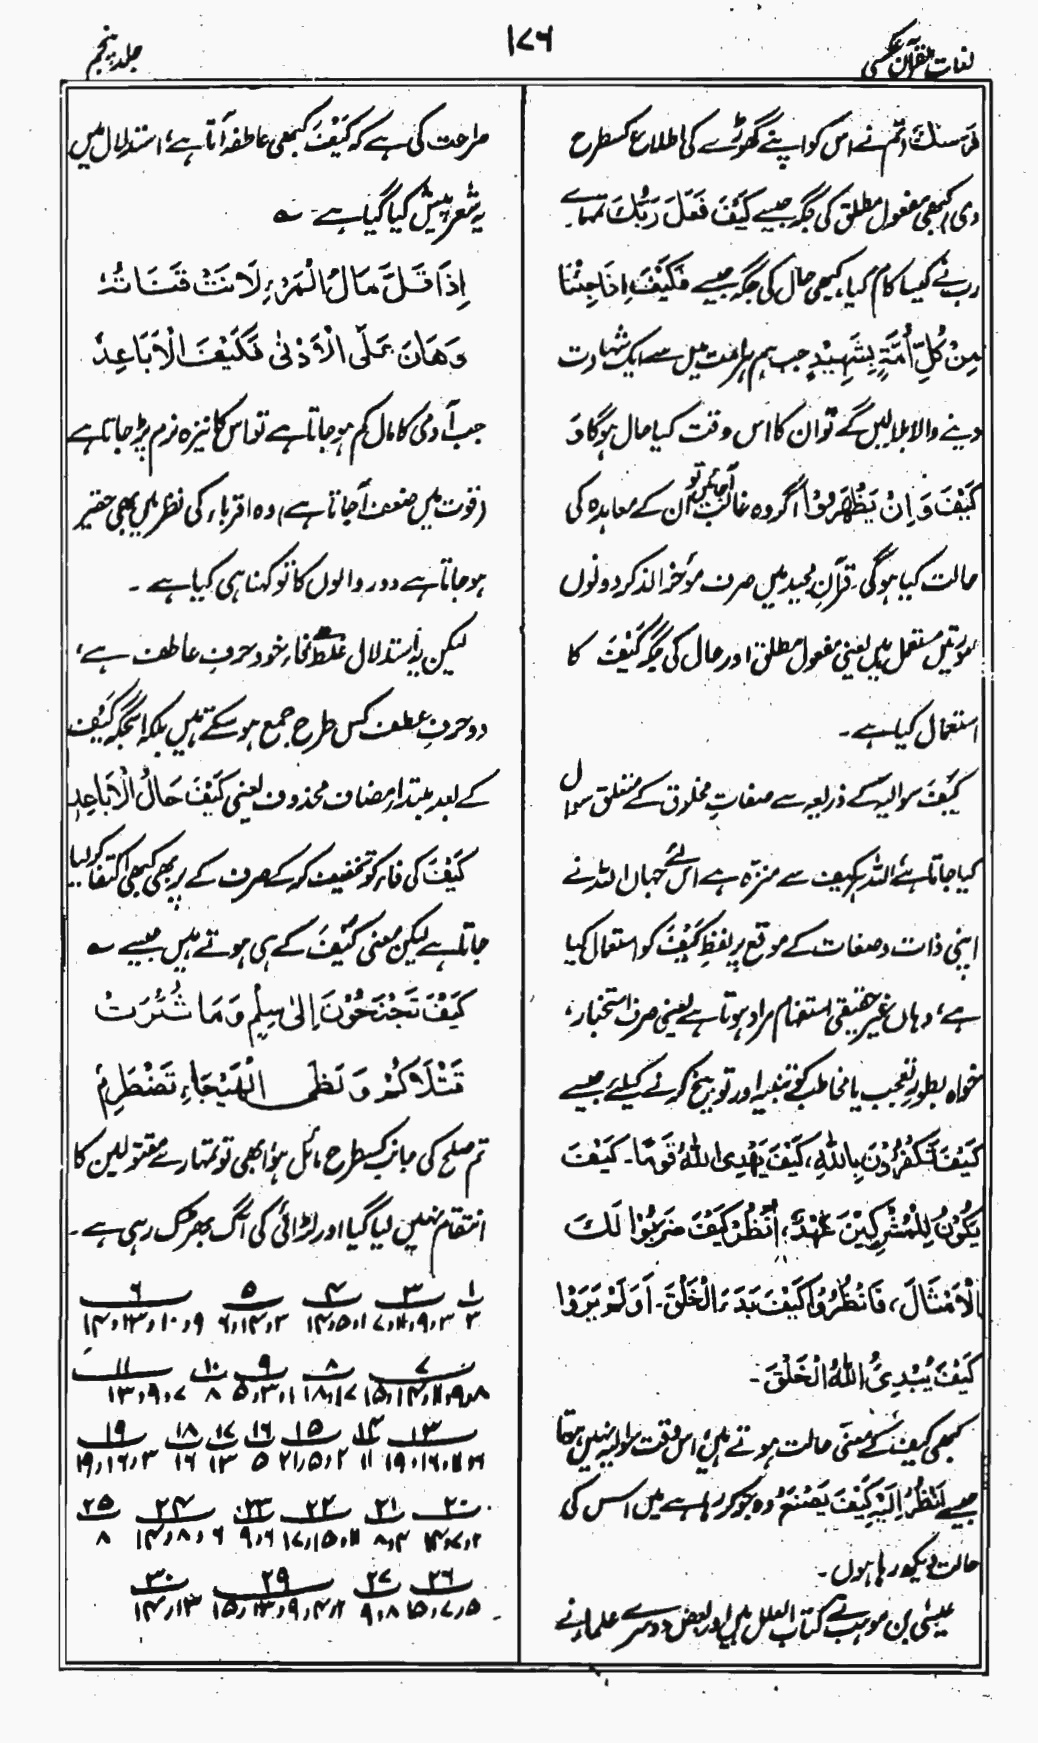 لغات القرآن عکسی
۱۷۶
جلد پنجم
فَرَسَكَ (تم نے اس کو اپنے گھوڑے کی اطلاع کسطرح
دی) کبھی مفعول مطلق کی جگہ جیسے كَيْفَ فَعَلَ رَبُّكَ تمہارے
رب نے کیسا کام کیا، کبھی حال کی جگہ جیسے فَكَيْفَ اِذَا جِئْنَا
مِنْ كُلِّ اُمَّةٍ بِشَهِيْدٍ جب ہم ہر امت میں سے ایک شہادت
دینے والا بلالیں گے تو ان کا اس وقت کیا حال ہوگا وَ
كَيْفَ وَاِنْ يَظْهَرُوْا اگر وہ غالب آجائیں تو ان کے معاہدہ کی
حالت کیا ہوگی۔ قرآنِ مجید میں صرف مؤخر الذکر دونوں
صورتیں مستعمل ہیں یعنی مفعول مطلق اور حال کی جگہ كَيْفَ کا
استعمال کیا ہے۔
كَيْفَ سوالیہ کے ذریعہ سے صفاتِ مخلوق کے متعلق سوال
کیا جاتا ہے اللہ کیف سے منزہ ہے اس لئے جہاں اللہ نے
اپنی ذات و صفات کے موقع پر لفظِ كَيْفَ کو استعمال کیا
ہے، وہاں غیر حقیقی استفہام مراد ہوتا ہے یعنی صرف استخبار،
خواہ بطورِ تعجب یا مخاطب کو تنبیہ اور توبیخ کرنے کیلئے جیسے
كَيْفَ تَكْفُرُوْنَ بِاللّٰهِ، كَيْفَ يَهْدِى اللّٰهُ قَوْمًا۔ كَيْفَ
يَكُوْنُ لِلْمُشْرِكِيْنَ عَهْدٌ، اُنْظُرْ كَيْفَ ضَرَبُوْا لَكَ
الْاَمْثَالَ، فَانْظُرُوْا كَيْفَ بَدَءَ الْخَلْقَ۔ اَوَلَمْ يَرَوْا
كَيْفَ يُبْدِئُ اللّٰهُ الْخَلْقَ۔
کبھی کیف کے معنی حالت ہوتے ہیں اس وقت سوالیہ نہیں ہوتا
جیسے اُنْظُرْ اِلَيْهِ كَيْفَ يَصْنَعُ وہ جو کر رہا ہے میں اس کی
حالت دیکھ رہا ہوں۔
عیسیٰ بن موہب نے کتاب العلل میں اور بعض دوسرے علماء نے
صراحت کی ہے کہ كَيْفَ کبھی عاطفہ آتا ہے، استدلال میں
یہ شعر پیش کیا گیا ہے۔ ؎
اِذَا قَلَّ مَالُ الْمَرْءِ لَانَتْ قَنَاتُهٗ
وَهَانَ عَلَى الْاَدْنٰى فَكَيْفَ الْاَبَاعِدُ
جب آدمی کا مال کم ہو جاتا ہے تو اس کا نیزہ نرم پڑجاتا ہے
(قوت میں ضعف آجاتا ہے) وہ اقرباء کی نظر میں بھی حقیر
ہوجاتا ہے دور والوں کا تو کہنا ہی کیا ہے۔
لیکن یہ استدلال غلط ہے فاء خود حرفِ عاطف ہے،
دو حرفِ عطف کس طرح جمع ہو سکتے ہیں بلکہ اسجگہ كَيْفَ
کے بعد مبتدا مضاف محذوف یعنی كَيْفَ حَالُ الْاَبَاعِدِ
كَيْفَ کی فاء کو تخفیف کر کے صرف کے پر بھی کبھی اکتفا کر لیا
جاتا ہے لیکن معنی كَيْفَ کے ہی ہوتے ہیں جیسے ؎
كَيْفَ تَجْنَحُوْنَ اِلٰى سِلْمٍ وَمَا ثُئِرَتْ
قَتْلَاكُمْ وَ لَظَى الْهَيْجَاءِ تَضْطَرِمُ
تم صلح کی جانب کسطرح مائل ہو ابھی تو تمہارے مقتولین کا
انتقام نہیں لیا گیا اور لڑائی کی آگ بھڑک رہی ہے۔
۱ ۳ ۴ ۵ ۶
۳ ۳،۹،۱۱،۷ ۱،۵،۱۴ ۳،۱۴،۶ ۹،۱۰،۱۳،۱۴
۷ ۸ ۹ ۱۰ ۱۱
۸،۹،۱۱،۱۴،۱۵ ۱۷،۱۸ ۱،۳،۵ ۸ ۷،۹،۱۳
۱۳ ۱۴ ۱۵ ۱۶ ۱۷ ۱۸ ۱۹
۱۱،۱۶،۱۹ ۱۱ ۲،۵،۲۱ ۵ ۱۳ ۱۶ ۳،۱۶،۱۹
۲۰ ۲۱ ۲۲ ۲۳ ۲۴ ۲۵
۲،۷،۱۴ ۴،۸ ۱۱،۱۵،۱۷ ۶،۹ ۶،۸،۱۴ ۸
۲۶ ۲۷ ۲۹ ۳۰
۵،۷،۱۵ ۸،۹ ۲،۴،۹،۱۳،۱۵ ۱۳،۱۴